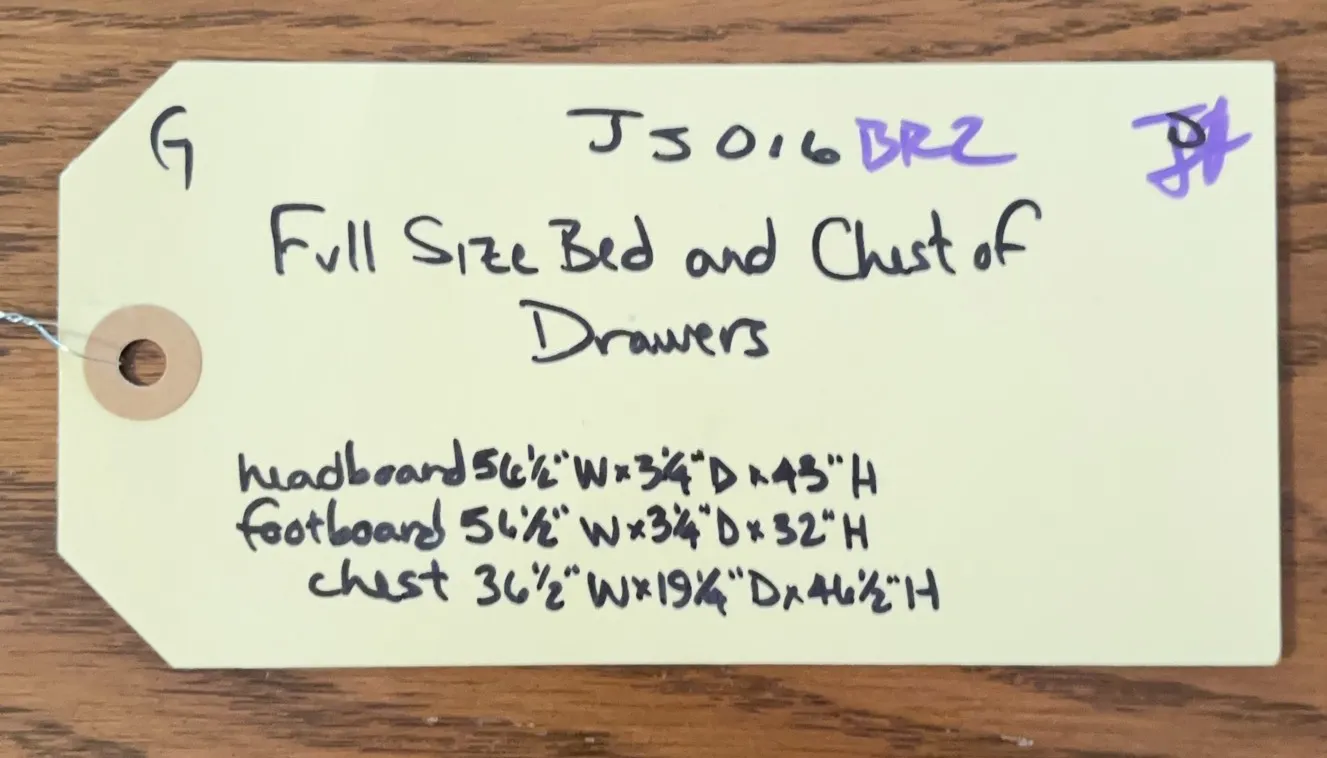 G JS016 BR2
Full Size Bed and Chest of
Drawers
headboard 56½" W x 3¼" D x 43" H
footboard 56½" W x 3¼" D x 32" H
chest 36½" W x 19¼" D x 46½" H